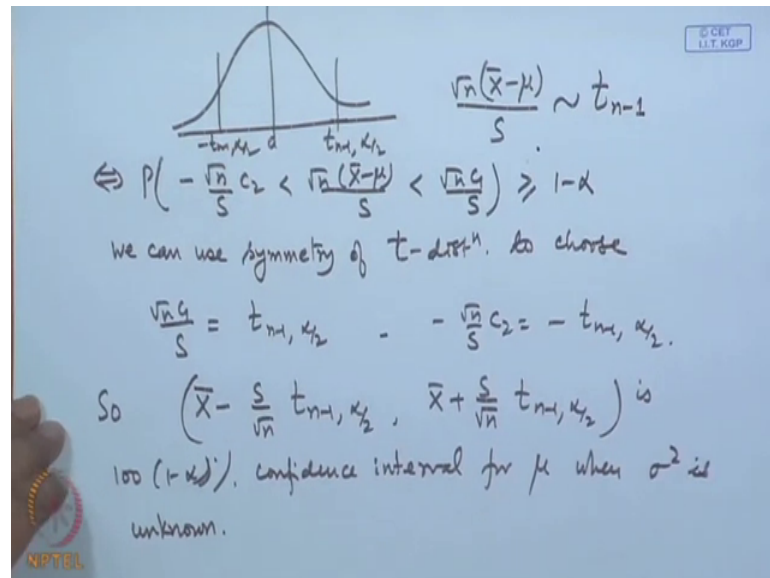 © CET
I.I.T. KGP
√n(X̄-μ)/S ~ t_{n-1}
-t_{n-1, α/2} 0 t_{n-1, α/2}
⇔ P( - √n/S c₂ < √n(X̄-μ)/S < √n c₁/S ) ≥ 1-α
We can use symmetry of t-distⁿ. to choose
√n c₁/S = t_{n-1, α/2} . - √n/S c₂ = - t_{n-1, α/2}.
So ( X̄ - S/√n t_{n-1, α/2} , X̄ + S/√n t_{n-1, α/2} ) is
100 (1-α)%. confidence interval for μ when σ² is
unknown.
NPTEL